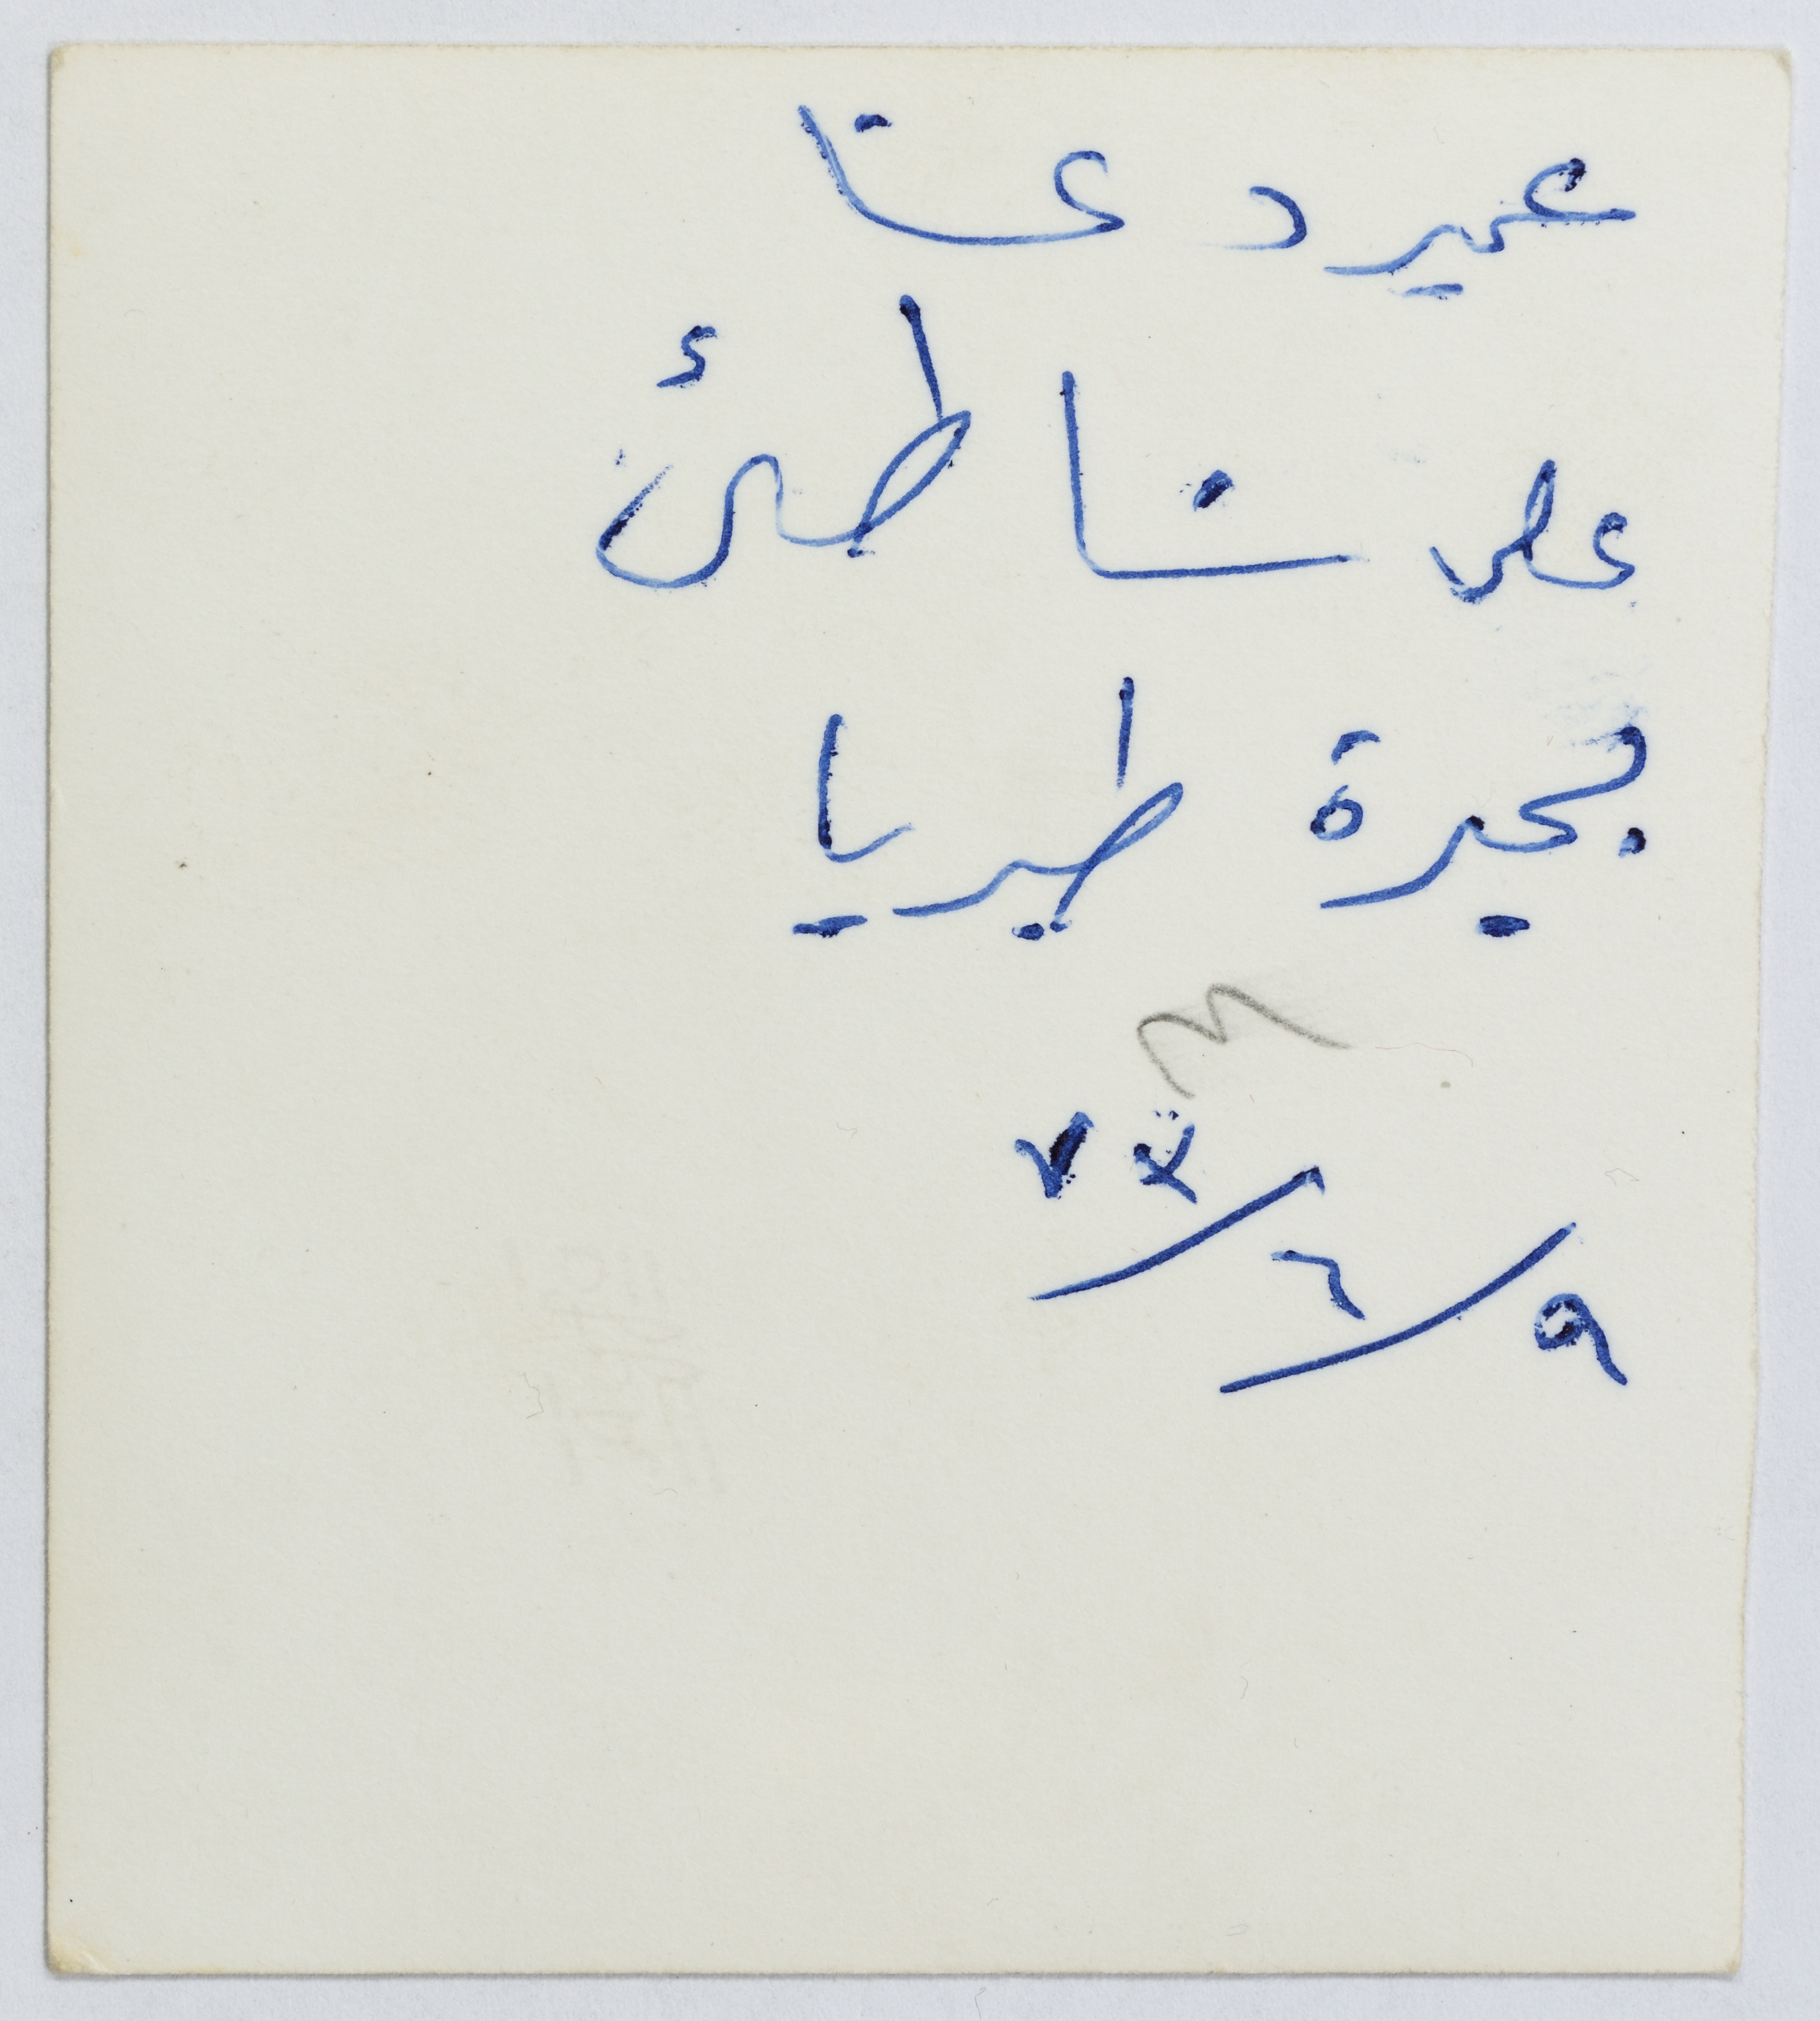 عمير دعنا
على شاطئ
بحيرة طبريا
٩/٦/٧٣